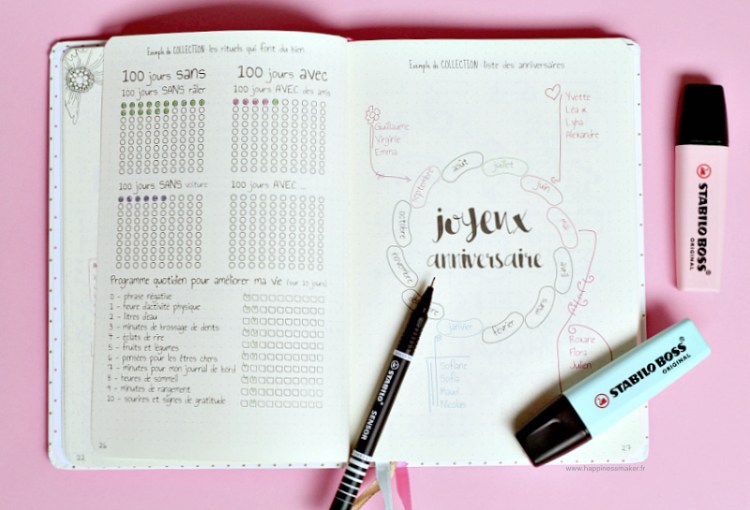 Exemple de COLLECTION: les rituels qui font du bien
100 jours sans
100 jours SANS râler
100 jours avec
100 jours AVEC des amis
100 jours SANS voiture
100 jours AVEC ...
Programme quotidien pour améliorer ma vie (sur 20 jours)
0 - phrase négative
1 - heure d'activité physique
2 - litres d'eau
3 - minutes de brossage de dents
4 - eclats de rire
5 - fruits et légumes
6 - pensées pour les êtres chers
7 - minutes pour mon journal de bord
8 - heures de sommeil
9 - minutes de rangement
10 - sourires et signes de gratitude
22
26
Exemple de COLLECTION: liste des anniversaires
Guillaume
Virginie
Emma
Yvette
Léa
Lyha
Alexandre
août
juillet
juin
mai
avril
mars
février
janvier
novembre
octobre
septembre
joyeux
anniversaire
Roxane
Flora
Julien
Sofia
Nicolas
27
STABILO BOSS
ORIGINAL
STABILO BOSS
ORIGINAL
STABILO SENSOR
www.happinessmaker.fr